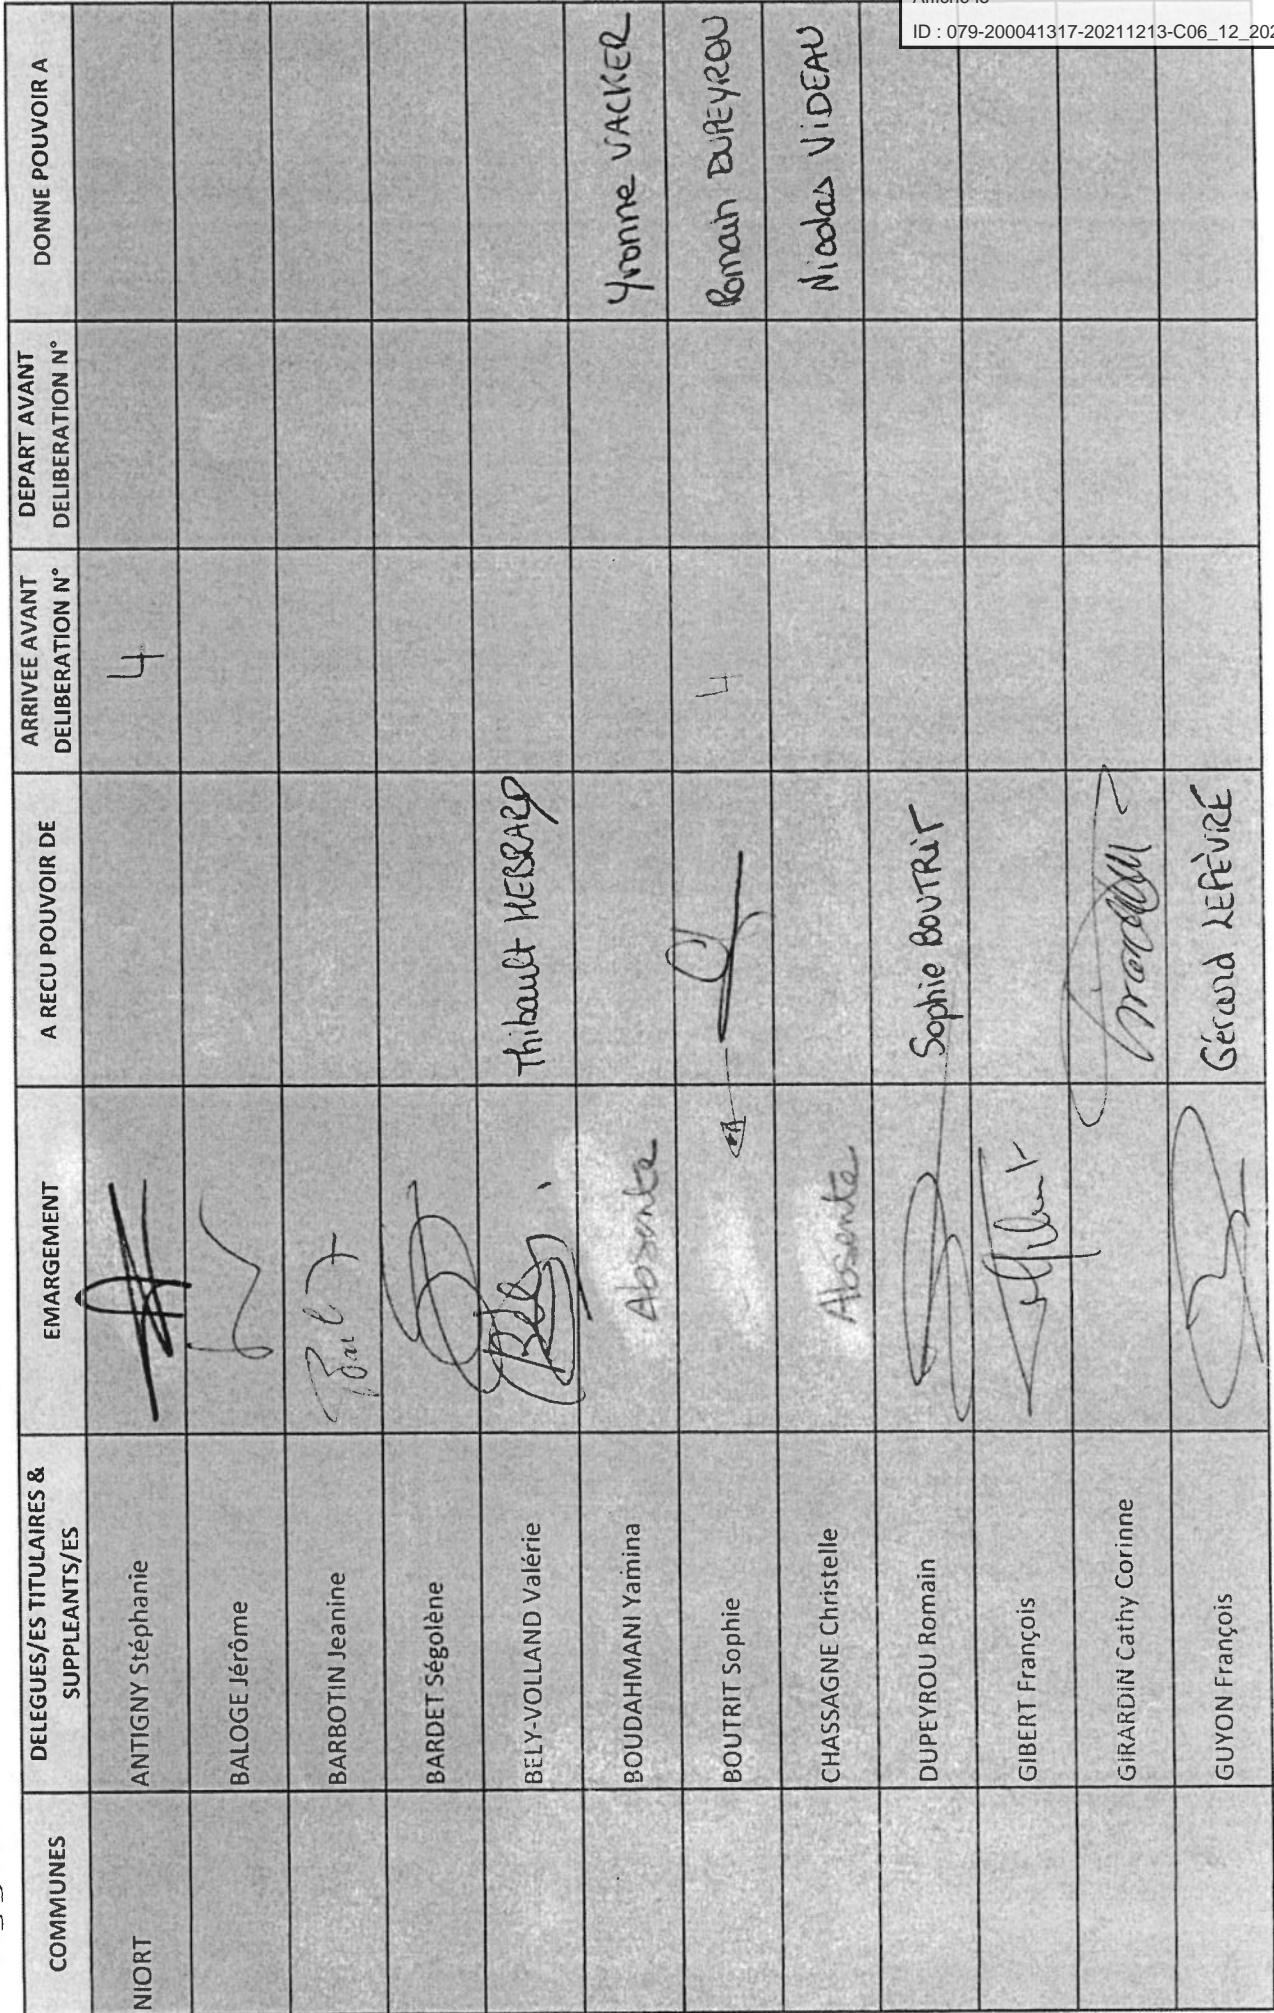 Affiché le
ID : 079-200041317-20211213-C06_12_202
COMMUNES
DELEGUES/ES TITULAIRES &
SUPPLEANTS/ES
EMARGEMENT
A RECU POUVOIR DE
ARRIVEE AVANT
DELIBERATION N°
DEPART AVANT
DELIBERATION N°
DONNE POUVOIR A
NIORT
ANTIGNY Stéphanie
4
BALOGE Jérôme
BARBOTIN Jeanine
BARDET Ségolène
BELY-VOLLAND Valérie
Thibault HEBRARD
BOUDAHMANI Yamina
Absente
Yvonne VACKER
BOUTRIT Sophie
4
Romain DUPEYROU
CHASSAGNE Christelle
Absente
Nicolas VIDEAU
DUPEYROU Romain
Sophie BOUTRIT
GIBERT François
GIRARDIN Cathy Corinne
GUYON François
Gérard LEFÈVRE